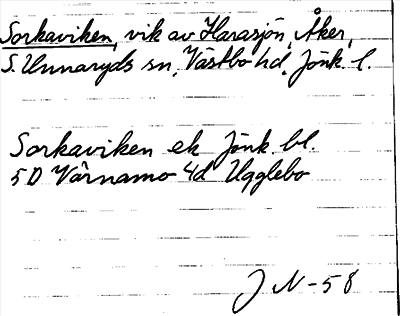 Sorkaviken, vik av Harasjön, Åker,
S. Unnaryds sn, Västbo hd, Jönk. l.
Sorkaviken ek Jönk. bl.
5D Värnamo 4d Ugglebo
J N-58